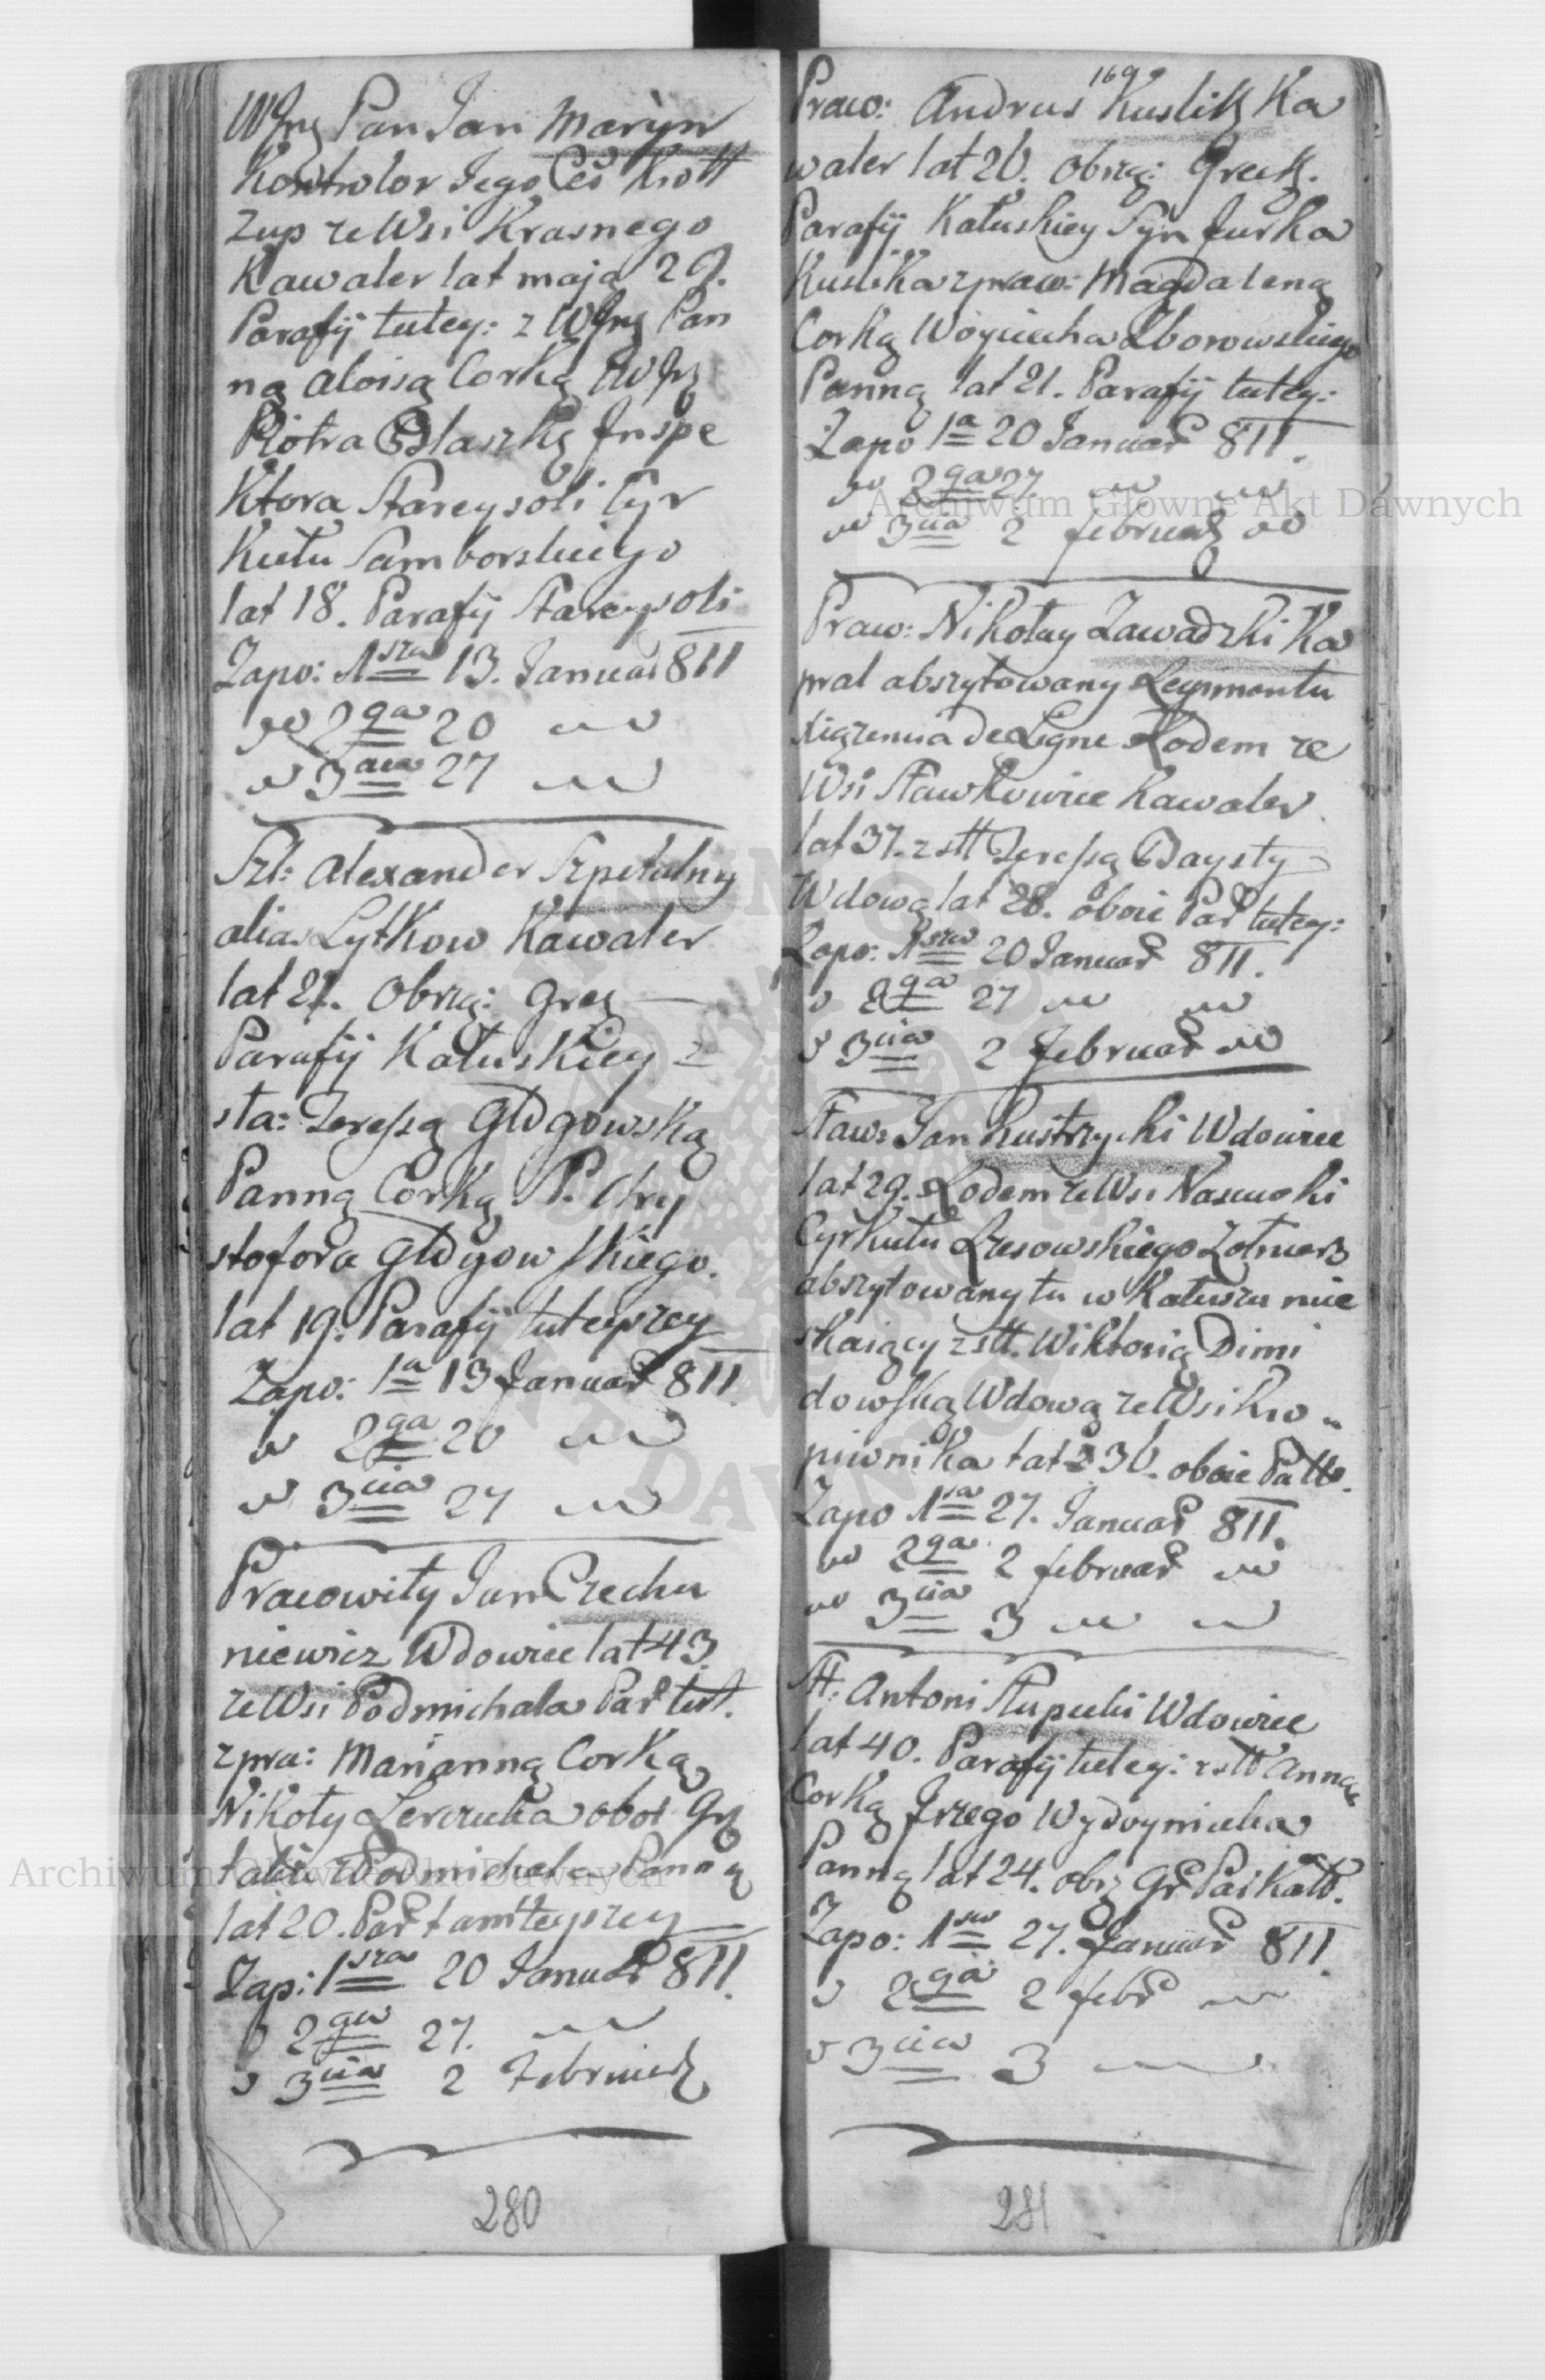 WJmę Pan Jan Maryn
Kontrolor Jego Ces Kro
Zup ze Wsi Krasnego
Kawaler lat maja 29.
Parafij tutey: z WJmę Pan
ną Aloisą Corką
Piotra Inspe
ktora Stareysoli Cyr
kułu Samborskiego
lat 18. Parafij Stareysoli
Zapo: 1sza 13. Januar 811
2ga 20
3cia 27
Szl: Alexander Szpetalny
alias Lytkow Kawaler
lat 21. Obrzą: Greg
Parafij Kałuskiey z
sta: Teressą Głogowską
Panną Corką P. Chry
stofora Głogowskiego.
lat 19. Parafij tuteyszey
Zapo: 1a 13 Januar 811
2ga 20
3cia 27
Pracowity Jan Czechu
niewicz Wdowiec lat 43.
ze Wsi Podmichala Par tut.
z pra: Marianną Corką
Nikoły
także z Podmichala Panną
lat 20. Par tamteyszey
Zap: 1sza 20 Januar 811.
2ga 27.
3cia 2 Februar
280
169
Praw: Andrus Kuslik Ka
waler lat 26. Obrzą: Greck.
Parafij Kałuskiey Syn Jurka
Kuslika z praw: Magdaleną
Corką Woyciecha Zborowskiego
Panną lat 21. Parafij tutey:
Zapo 1a 20 Januar 811.
2ga 27
3cia 2 februar
Praw: Nikołay Zawadzki Ka
pral abszytowany Regimentu
Xiązencia de Ligne Rodem ze
Wsi Sławkowice Kawaler
lat 37. z stt Teressą Baysty
Wdową lat 28. oboie Par tutey:
Zapo: 1sza 20 Januar 811.
2ga 27
3cia 2 Februar
Staw: Jan Kustrzycki Wdowiec
lat 29. Rodem ze Wsi
Cyrkułu Rzesowskiego Zołnierz
abszytowany tu w Kałuszu mie
skaiący z stt. Wiktorią Dimi
dowską Wdową ze Wsi Kro
piwnika lat 36. oboie Pa
Zapo 1sza 27. Januar 811.
2ga 2 februar
3cia 3
Stt: Antoni Słupecki Wdowiec
lat 40. Parafij tutey: z stt Anną
Corką Jrzego
Panną lat 24. obrz Gr Par Kałt.
Zapo: 1sza 27. Januar 811.
2ga 2 febr
3cia 3
281
Archiwum Główne Akt Dawnych
Archiwum Główne Akt Dawnych